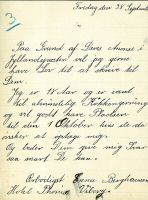 3
Torsdag den 28 September
Paa Grund af Deres Annonce i
Jyllandsposten vil jeg gerne
have Lov til at skrive til
Dem.
Jeg er 18 Aar og er vant
til almindelig Kökkengerning
og vil godt have Pladsen
til den 1 Oktober hvis de de
ønsker at antage mig.
Og beder Dem give mig Svar
saa snart De kan.
Ærbødigst Emma Berghausen
Hotel Phønix Viborg.